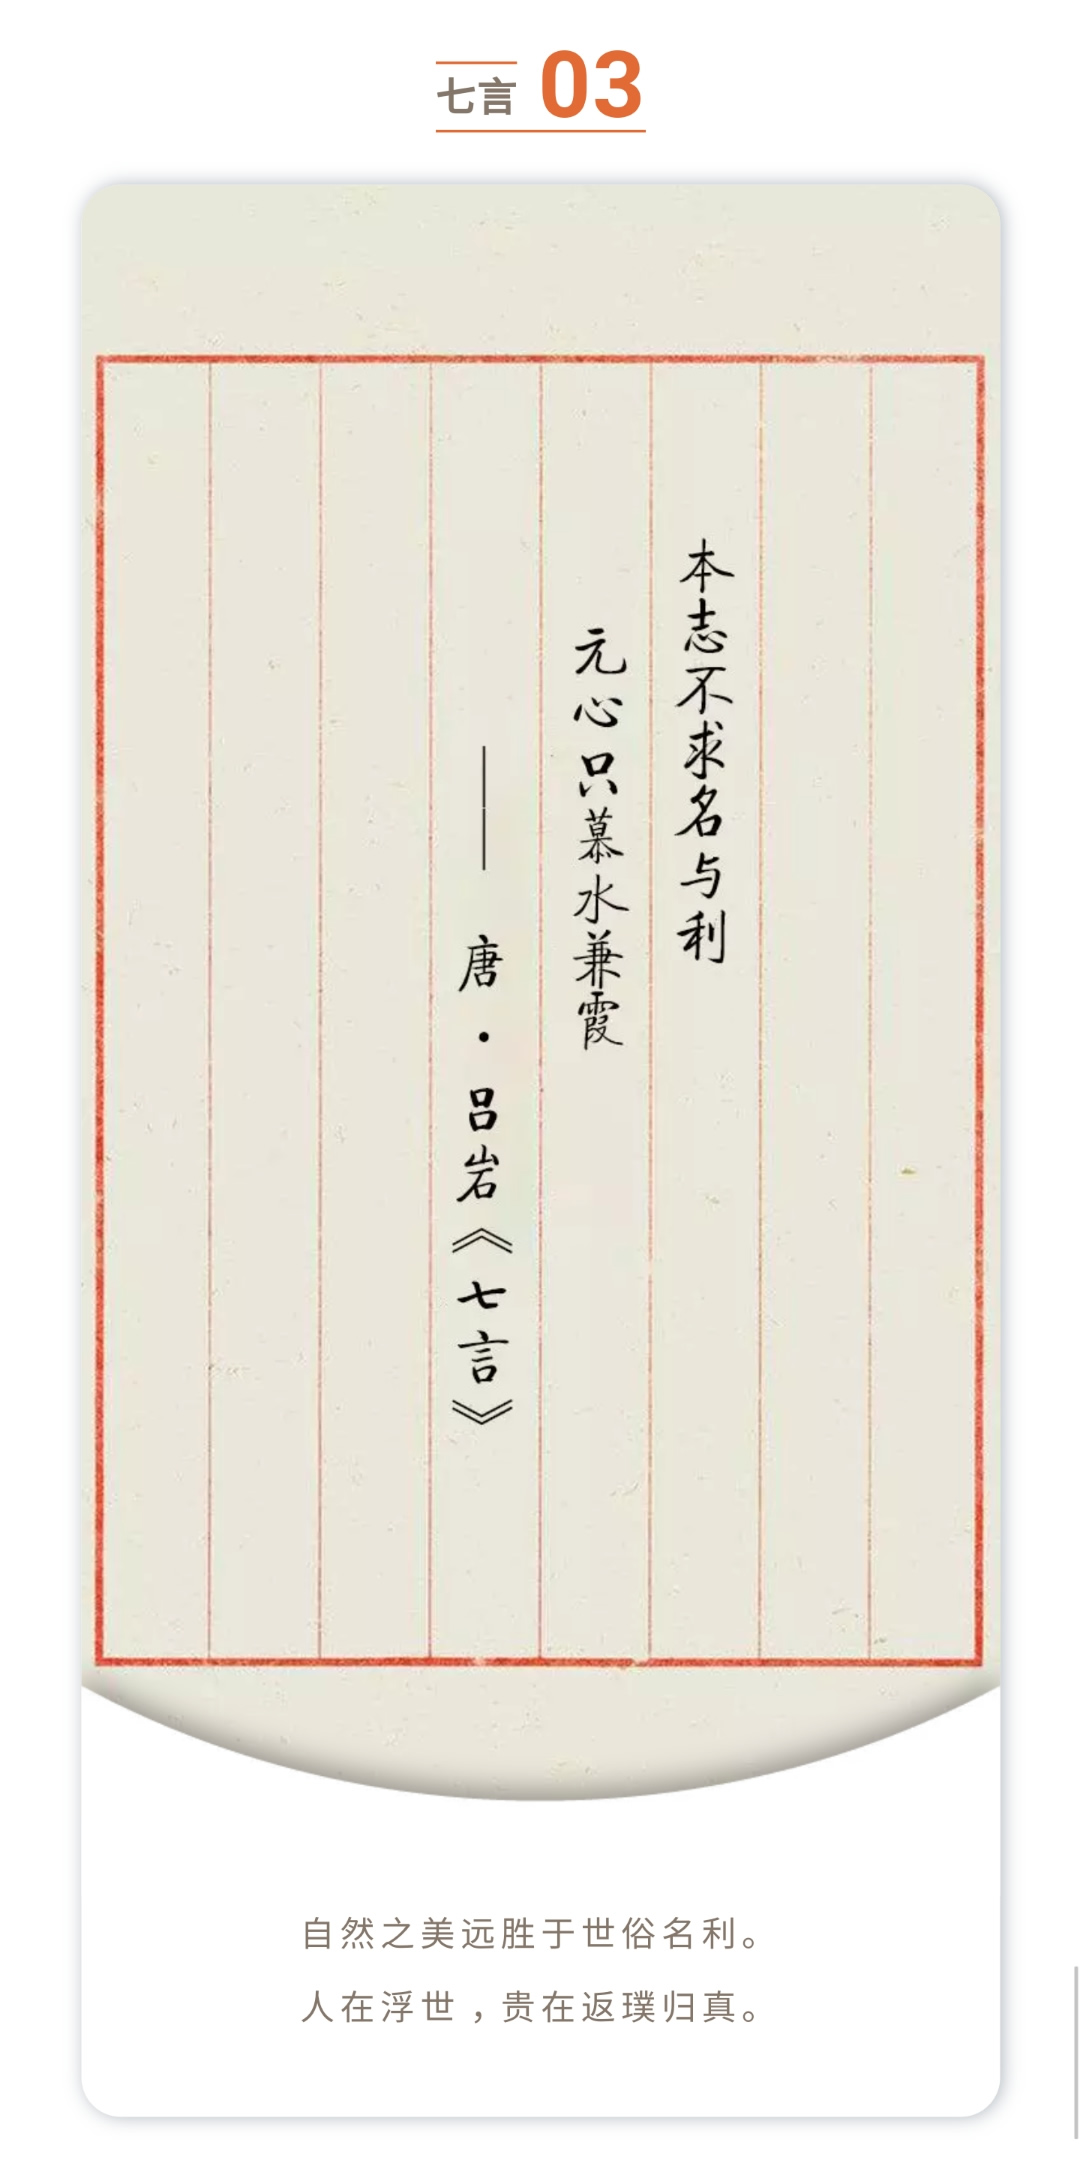 七言 03
本志不求名与利
元心只慕水兼霞
——唐·吕岩《七言》
自然之美远胜于世俗名利。
人在浮世，贵在返璞归真。